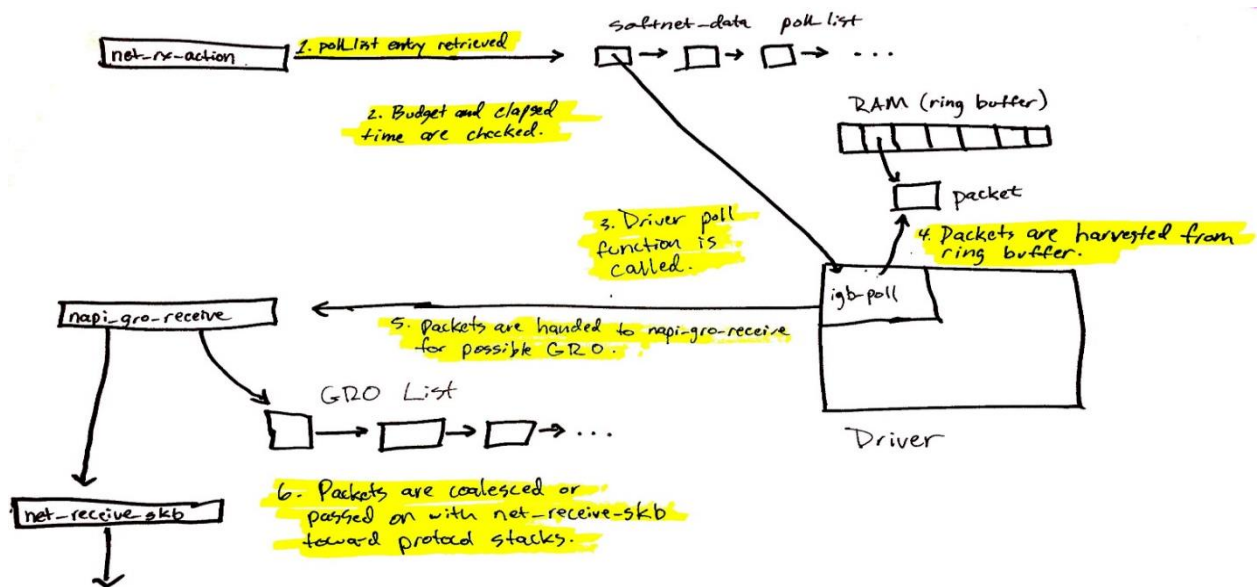 softnet_data poll list
net_rx_action
1. poll list entry retrieved
...
2. Budget and elapsed
time are checked.
RAM (ring buffer)
packet
3. Driver poll
function is
called.
4. Packets are harvested from
ring buffer.
igb-poll
napi_gro_receive
5. packets are handed to napi-gro-receive
for possible GRO.
GRO List
...
Driver
6. Packets are coalesced or
passed on with net-receive-skb
toward protocol stacks.
net_receive_skb